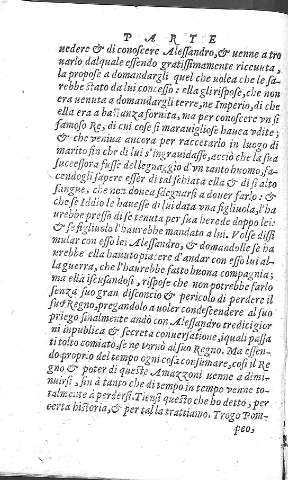 PARTE
uedere & di conoscere Alessandro, & uenne a tro
uarlo dalquale essendo gratissimamente riceuuta,
la propose a domandargli quel che uolea che le sa
rebbe stato da lui concesso: ella gli rispose, che non
era uenuta a domandargli terre, ne Imperio, di che
ella era a bastanza fornita, ma per conoscere un sì
famoso Re, di cui cose sì marauigliose hauea udite;
& che veniua ancor per raccettarlo in luogo di
marito fin che di lui s'ingrauidasse, acciò che la sua
successora fusse del legnaggio d'un tanto huomo, fa
cendogli sapere esser di tal schiatta ella & di sì alto
sangue, che non douea sdegnarsi a douer farlo: &
che se Iddio le hauesse di lui data vna figliuola, l'ha
urebbe presso di se tenuta per sua herede doppo lei:
& se figliuolo l'haurebbe mandato a lui. Volse dissi
mular con esso lei Alessandro, & domandolle se ha
urebbe ella hauuto piacere d'andar con esso lui al-
la guerra, che l'haurebbe fatto buona compagnia;
ma ella iscusandosi, rispose che non potrebbe farlo
senza suo gran disconcio & pericolo di perdere il
suo Regno, pregandolo a uoler condescendere al suo
priego finalmente andò con Alessandro tredici gior
ni in publica & secreta conuersatione, iquali passa
ti tolto comiato, se ne tornò al suo Regno. Ma essen-
do proprio del tempo ogni cosa consumare, così il Re
gno & poter di queste Amazzoni uenne a dimi-
nuirsi, fin à tanto che di tempo in tempo venne to-
talmente a perdersi. Tiensi questo che ho detto, per
certa historia, & per tal la trattiamo. Trogo Pom-
peo,